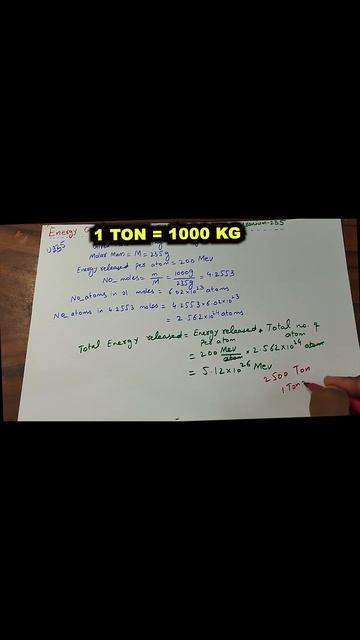 Energy
1 TON = 1000 KG
U-235
Molar Mass = M = 235g
Energy released per atom = 200 Mev
No_ moles = m/M = 1000g/235g = 4.2553
No_ atoms in 1 moles = 6.02×10^23 atoms
No_ atoms in 4.2553 moles = 4.2553×6.02×10^23
= 2.562×10^24 atoms
Total Energy released = Energy released per atom * Total no. of atom
= 200 Mev/atom × 2.562×10^24 atom
= 5.12×10^26 Mev
2500 Ton
1 Ton